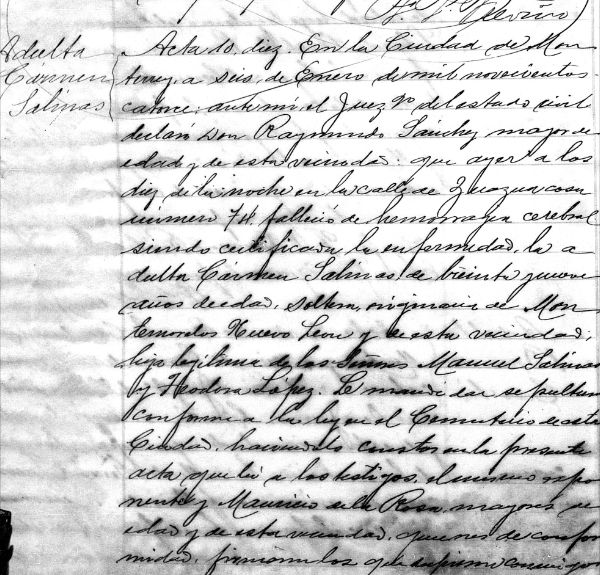 Adulta
Carmen
Salinas
Acta 10, diez. En la Ciudad de Mon
terrey, a seis, de Enero de mil novecientos
catorce; ante mi el Juez 1º del estado civil
declaró Don Raymundo Sánchez mayor de
edad y de esta vecindad: que ayer a las
diez de la noche en la calle de Zuazua casa
numero 74. falleció de hemorragia cerebral
siendo certificada la enfermedad, la a
dulta Cármen Salinas, de treinta y nueve
años de edad, soltera, originaria de Mon
temorelos Nuevo Leon y de esta vecindad;
hija legitima de los Señores Manuel Salinas
y Teodora López. Le mandé dar sepultura
conforme a la ley en el Cementerio de esta
Ciudad, haciendolo constar en la presente
acta que leí a los testigos, el mismo expo
nente y Mauricio de la Rosa, mayores de
edad y de esta vecindad, quienes de confor
midad, firmamos los que supimos conmigo